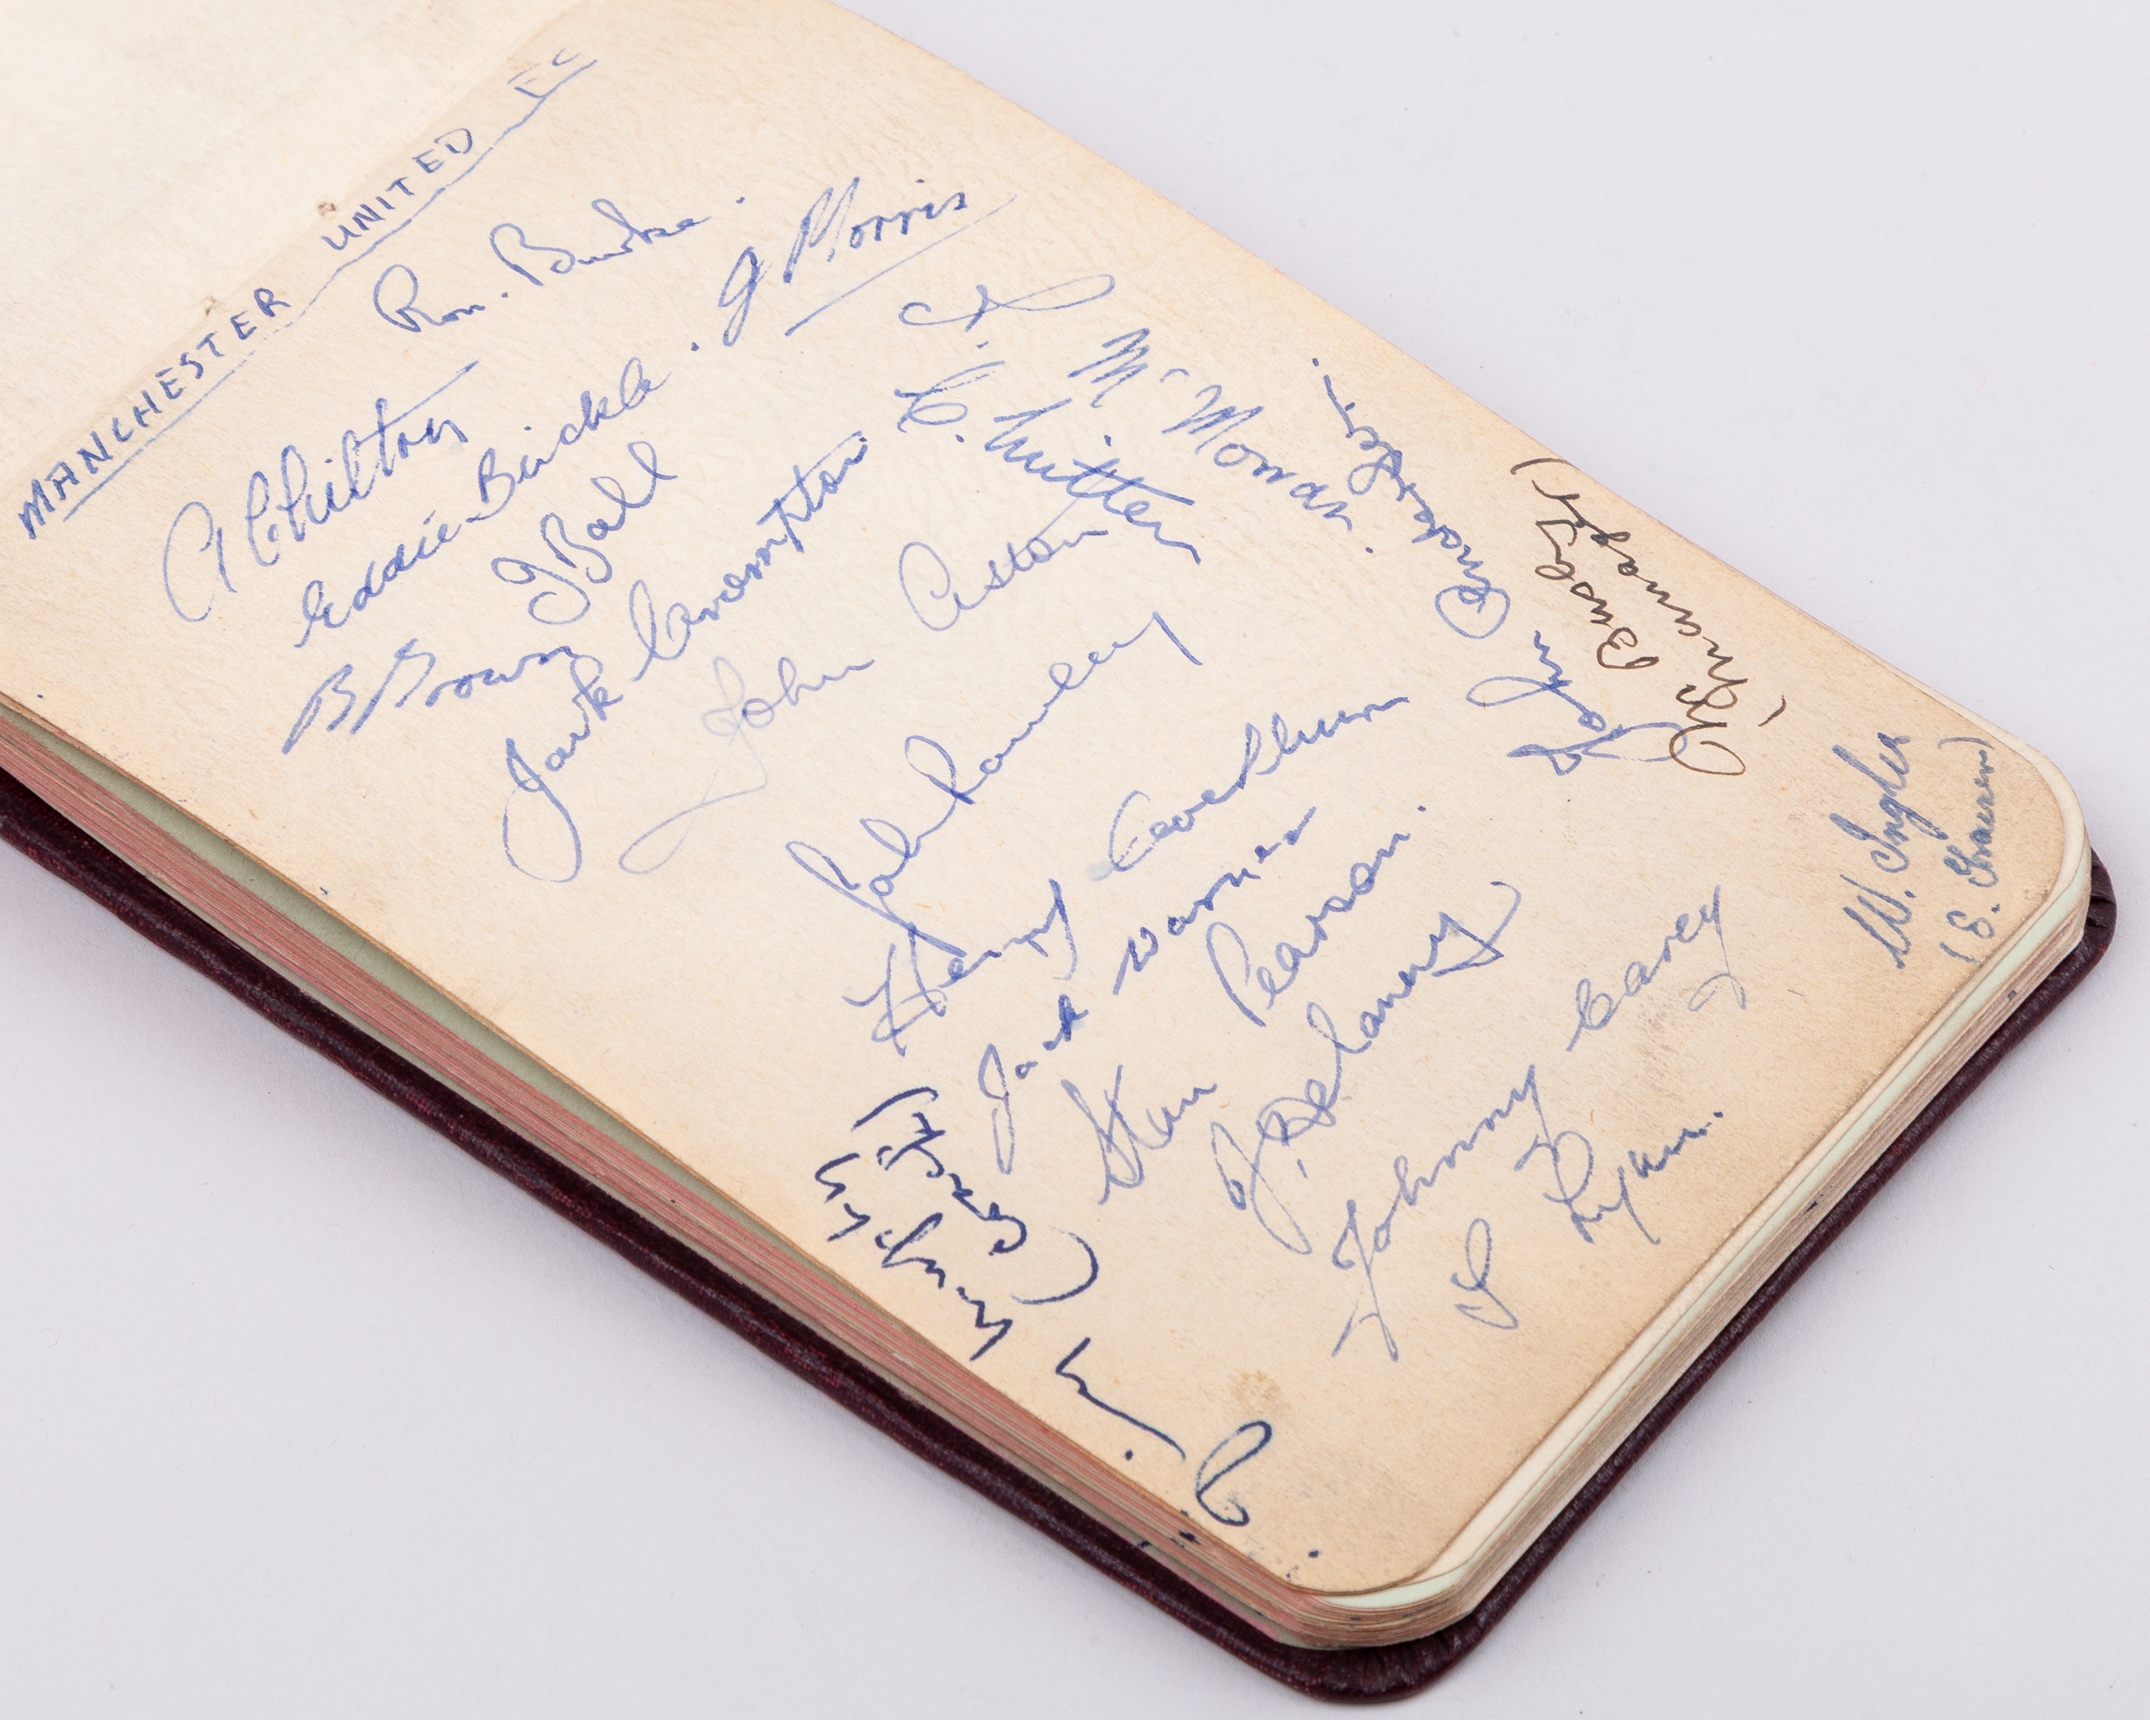 MANCHESTER UNITED FC
Ron. Burke.
A Chilton
Eddie Buckle.
G Morris
B Brown
J Ball
Jack Crompton
C. Mitten
S. McMorran.
John Aston
John Anderson.
M Busby
(Manager)
Jack
Henry Cockburn
Jack Warner
Stan Pearson.
J. Delaney
Johnny Carey
W. Inglis
(S. Trainer)